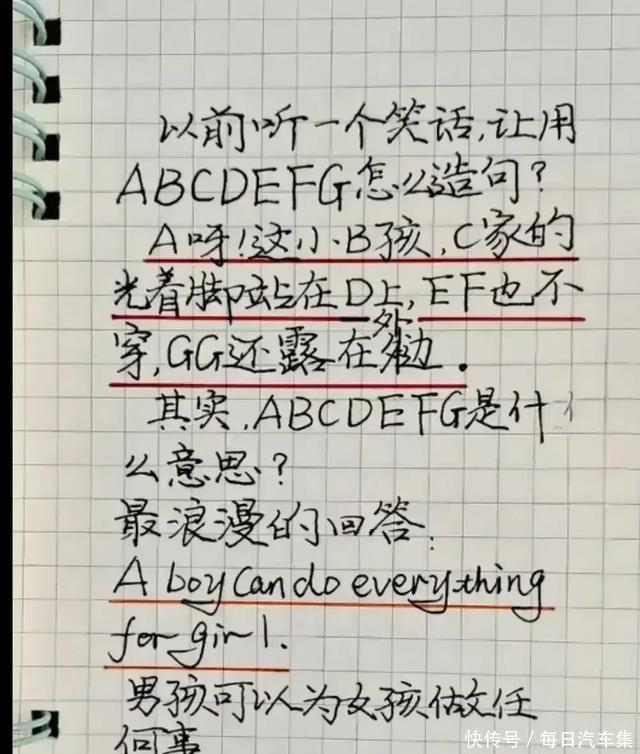 以前听一个笑话,让用
ABCDEFG怎么造句?
A呀!这小B孩,C家的
光着脚站在D上,EF也不
穿,GG还露在外边.
其实,ABCDEFG是什
么意思?
最浪漫的回答:
A boy can do everything
for girl.
男孩可以为女孩做任
何事
快传号/每日汽车集